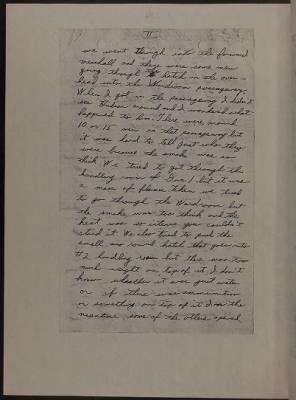 11
we went through into the forward
messhall and there were some men
going through a hatch in the over-
head into the Wardroom passageway.
When I got in the passageway I didn't
see Graham around and I wondered what
happened to him. There were around
10 or 15 men in that passageway but
it was hard to tell just who they
were because the smoke was so
thick. We tried to get through the
handling room of Gun 1 but it was
a mass of flames. Then we tried
to go through the Wardroom but
the smoke was too thick and the
heat was so intense you couldn't
stand it. We also tried to push the
small round hatch that goes into
#2 handling room but there was too
much weight on top of it. I don't
know whether it was just water
or if there was ammunition
or something on top of it. In the
meantime some of the others opened